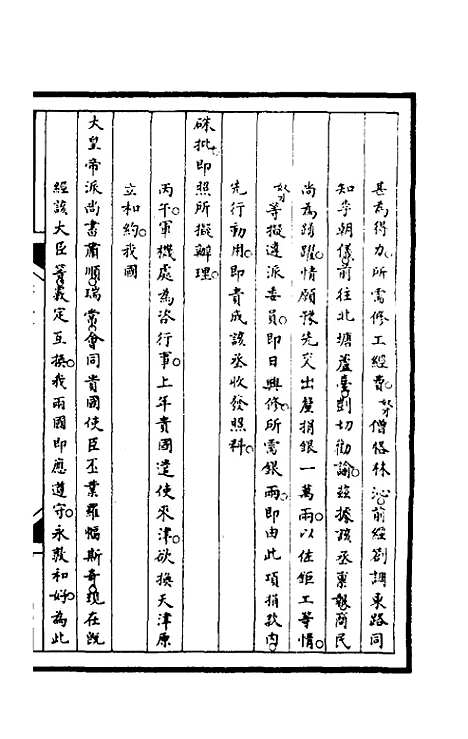 甚為得力。所需修工經費。奴才僧格林沁。前經劄調東路同
知李朝儀。前往北塘蘆臺。剴切勸諭。茲據該丞稟報。商民
尚為踴躍。情願豫先交出釐捐銀一萬兩。以佐鉅工等情。
奴才等擬遴派委員。即日興修。所需銀兩。即由此項捐款內。
先行動用。即責成該丞收發照料。
硃批。即照所擬辦理。
丙午。軍機處為咨行事。上年貴國遣使來津。欲換天津原
立和約。我國
大皇帝派尚書肅順。瑞常。會同貴國使臣丕業羅幅斯奇。現在既
經該大臣等。議定互換。我兩國即應遵守。永敦和好。為此